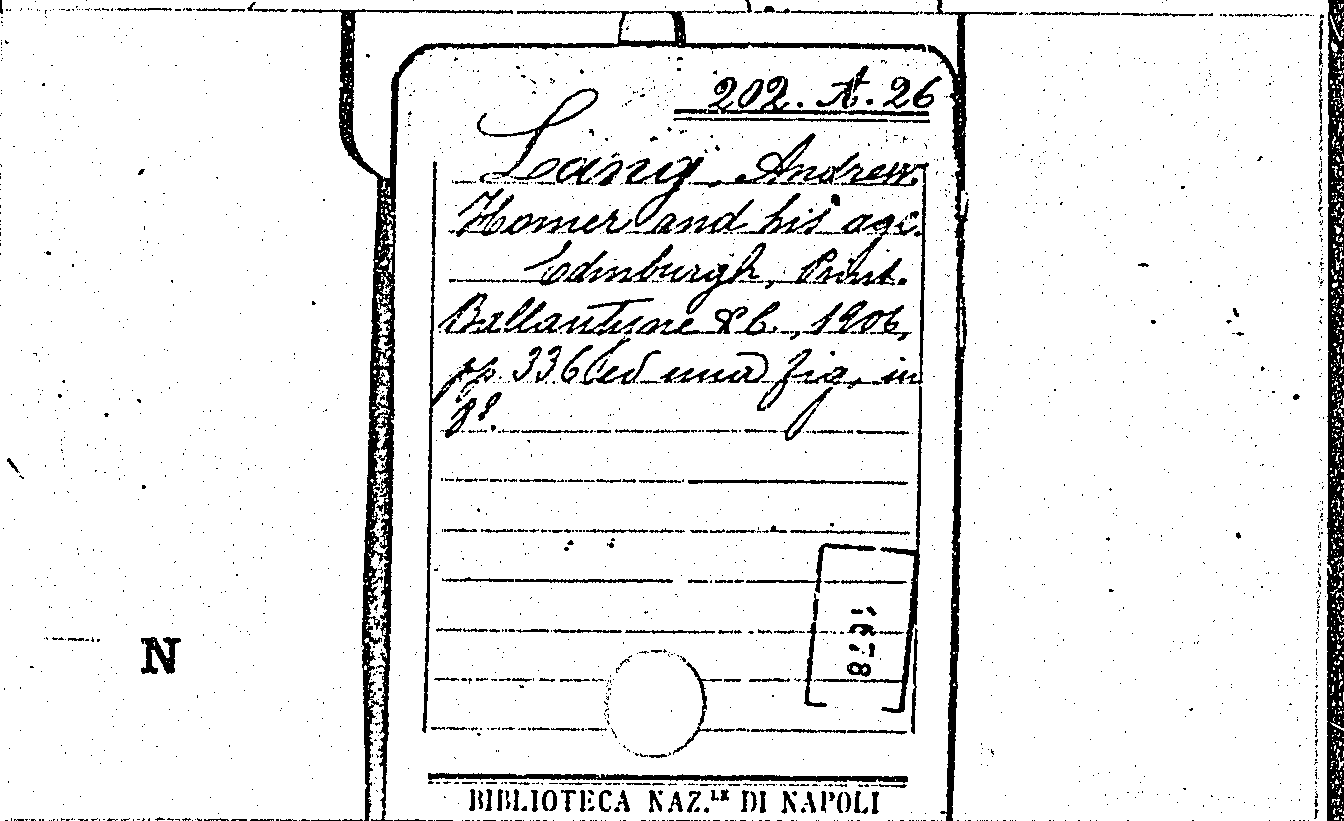 202. A. 26
Lang, Andrew.
Homer and his age.
Edinburgh, Print.
Ballantyne & C., 1906,
pp. 336 (ed una) fig, in
8º.
N
BIBLIOTECA NAZ.LE DI NAPOLI